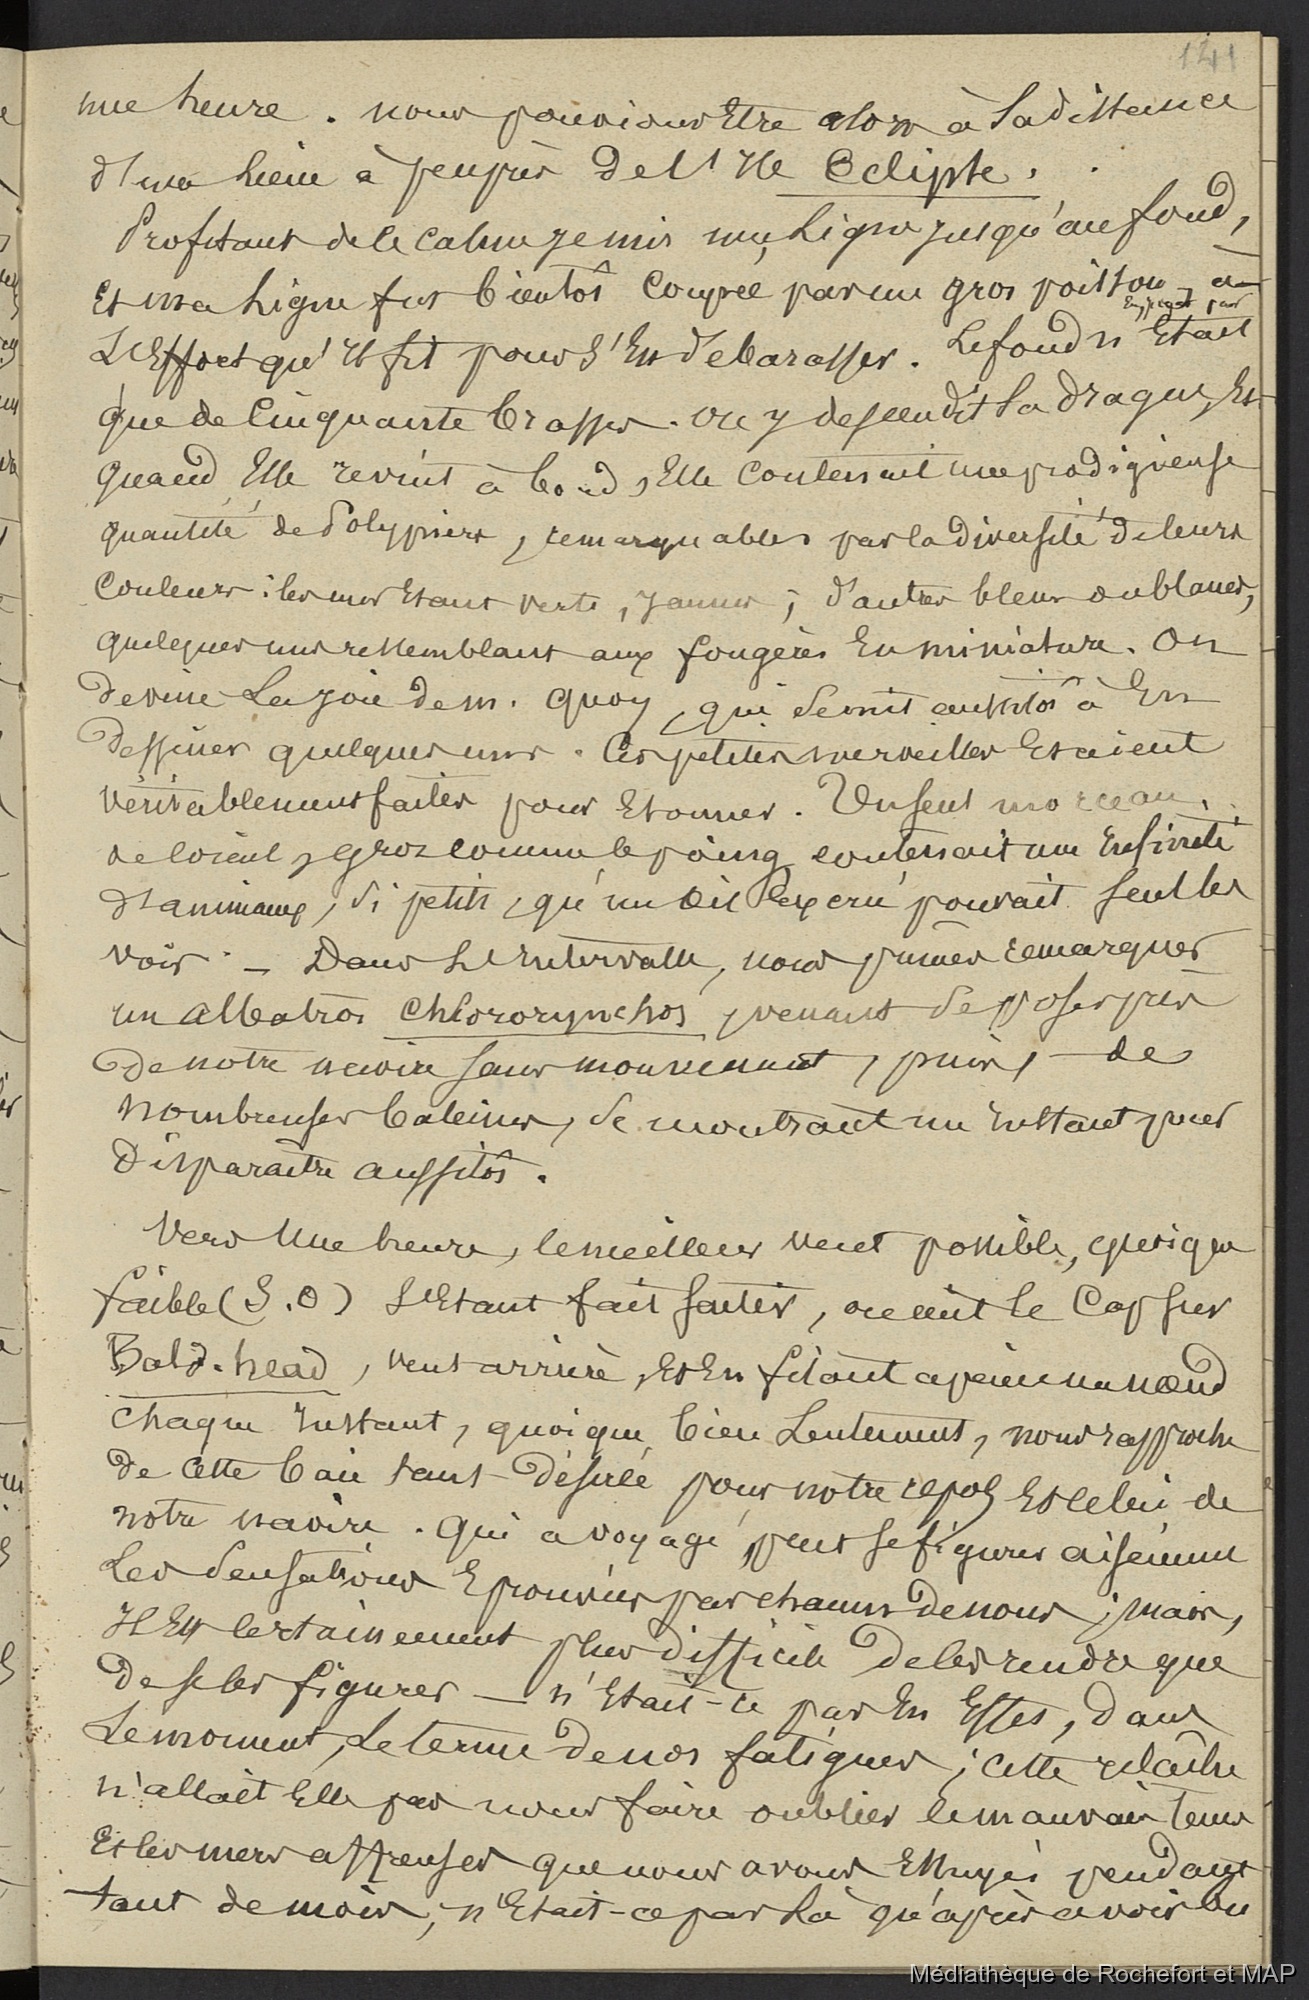 141
une heure. nous pouvions Etre alors à la distance
d'une lieue à peuprès de l'Ile Eclipse.
Profitant de le calme je mis ma ligne jusqu'au fond,
Et ma ligne fut bientôt coupée par un gros poisson, à
Engagé par
L'Effort qu'Il fit pour s'En débarasser. Le fond n'Etait
que de Cinquante brasses. on y descendit la drague, Et
quand Elle revint à bord, Elle contenait une prodigieuse
quantité de Polypiers, remarquables par la diversité de leurs
Couleurs : les uns Etant verts, jaunes, d'autres bleus ou blancs,
quelques uns ressemblant aux fougères En miniature. On
devine La joie de m. Quoy, qui se mit aussitôt à En
dessiner quelques uns. Ces petites merveilles Etaient
véritablement faites pour Etonner. Un seul morceau,
de corail, gros comme le poing contenait une Infinité
d'animaux, si petits, qu'un œil Exercé pouvait seul les
voir. — Dans L'Intervalle, nous pûmes remarquer
un albatros chlororynchos, venant se poser près
de notre navire sans mouvement, puis, de
nombreuses baleines, se montrant un Instant pour
disparaître aussitôt.
Vers Une heure, le meilleur vent possible, quoique
faible (S.O) s'Etant fait sentir, on mit le Cap sur
Bald-head, vent arrière, Et En filant à peine un nœud
chaque Instant, quoique bien Lentement, nous rapproche
de cette baie tant désirée pour notre repos Et celui de
notre navire. Qui a voyagé, peut se figurer aisément
Les sensations Eprouvées par chacun de nous ; mais,
Il Est certainement plus difficile de les rendre que
de se les figurer — n'Etait-ce pas En Effet, dans
Le moment, Le terme de nos fatigues ; cette relâche
n'allait Elle pas nous faire oublier le mauvais tems
Et les mers affreuses que nous avons Essuyés pendant
tant de mois ; n'Etait-ce pas Là qu'après avoir eu
Médiathèque de Rochefort et MAP